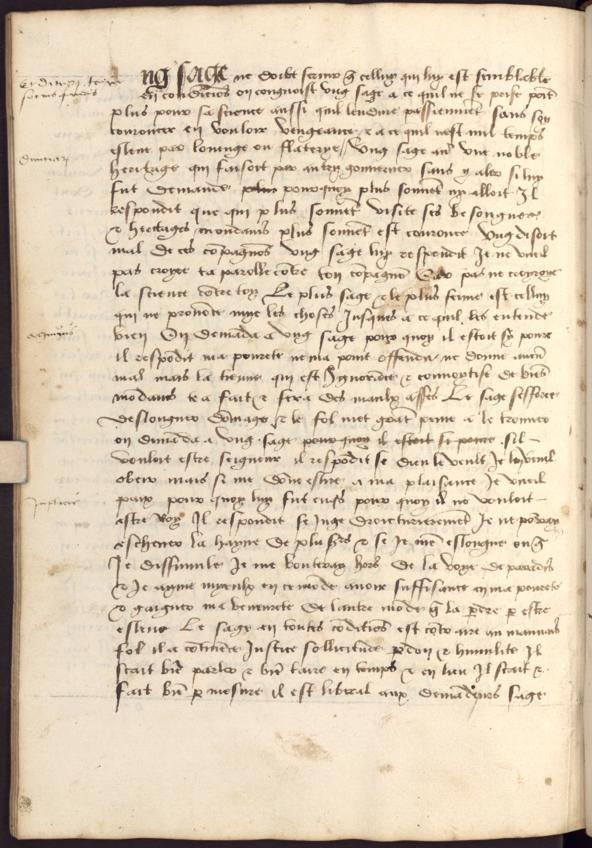 ung sage ne doibt servir q̃ celluy qui luy est semblable
En condicions on congnoist ung sage a ce quil ne se poise point
plus pour sa science aussi quil endure paciemment sans soy
couroucer en vouloir vengeance & a ce quil nest nul temps
esleue par louenge ou flaterye // Ung sage avoit une noble
heritage qui faisoit par autruy gouverner sans y aler si luy
fut demande pourquoy plus souvent ny alloit Il
respondit que qui plus souvent visite ses besongnes
& heritages mondains plus souvent est courouce Ung disoit
mal de ces cõpagnos ung sage luy respondit Je ne vueil
pas croyre ta parolle cõtre ton cõpagnõ pas ne croyroye
la science cõtre toy Le plus sage & le plus ferme est celluy
qui ne prononce mye les choses Jusques a ce quil les entende
bien On demãda a ung sage pour quoy il estoit sy povre
il respõdit ma povrete ne ma point offendu ne donne aucũ
mal mais la tienne qui est Ignorãce & convoytise de biẽs
mõdains te a fait & fera des maulx asses Le sage sefforce
deslongner dõmage & le fol met grãt peine a le trouver
on demãda a ung sage pour quoy il estoit si povre sil
vouloit estre seigneur il respõdit se dieu le veult Je le vueil
obeir mais si me dõne estre a ma plaisance Je vueil
paix pour quoy luy fut enqs pour quoy il ne vouloit
estre Roy Il respondit se Juge droicturierement Je ne pourray
eschever la hayne de plusrs & se Je me eslongne ou q̃
Je dissimule Je me bouteray hors de la voye de paradis
& Je ayme myeulx en ce mõde avoir suffisance en ma povrete
& gaigner ma beneurete de lautre mõde q̃ la pdre p estre
esleue Le sage en toutes cõditiõs est cõtraire au mauvais
fol il a cõtinue Justice sollicitude pdon & humilite Il
scait biẽ parler & biẽ taire en temps & en lieu Il scait &
fait biẽ p mesure il est liberal aux demãdeurs sage